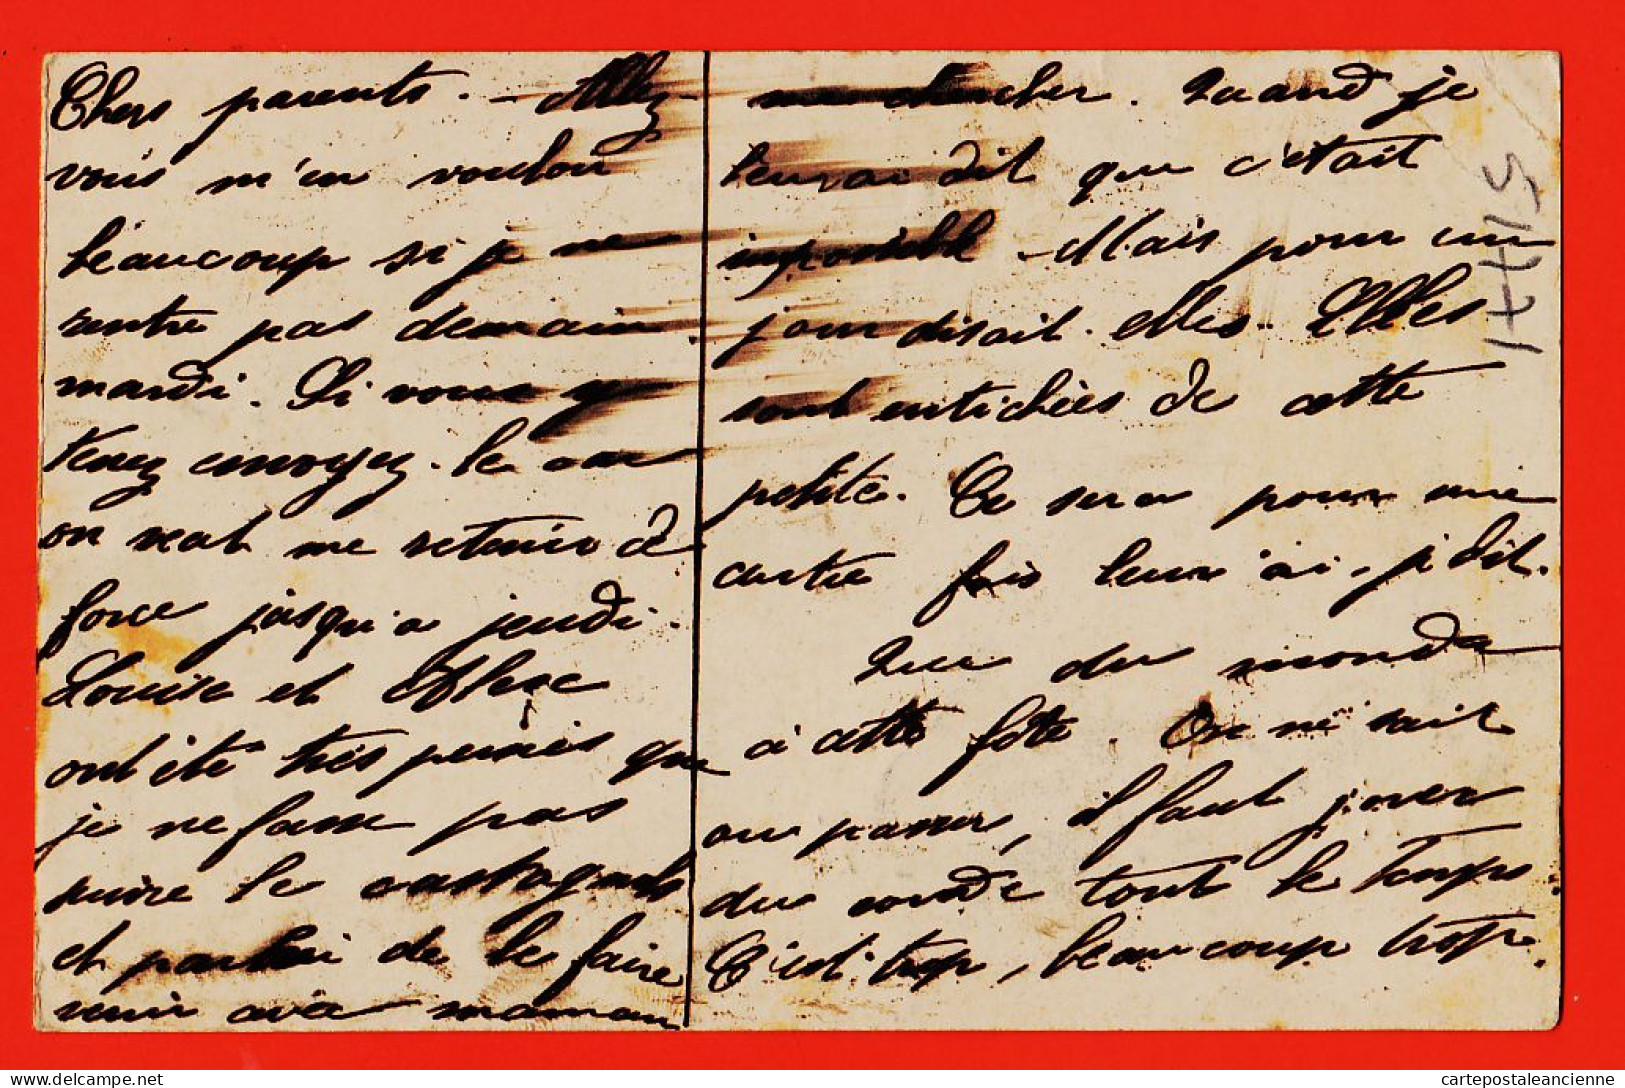 Chers parents. - Allez
vous m'en vouloir
beaucoup si je ne
rentre pas demain
mardi. Si vous y
tenez envoyez-le car
on veut me retenir de
force jusqu'a jeudi.
Louise et
ont été très peinées que
je ne fasse pas
suivre le
et de le faire
venir avec maman
me chercher. Quand je
leur ai dit que c'était
impossible - Mais pour un
jour disait-elles - Elles
sont entichées de cette
petite. Ce sera pour une
autre fois leur'ai-j dit.
Que du monde
à cette fête. On ne sait
ou passer, il faut jouer
du coude tout le temps.
C'est trop, beaucoup trop.
1-4-15
cartepostaleancienne
www.delcampe.net